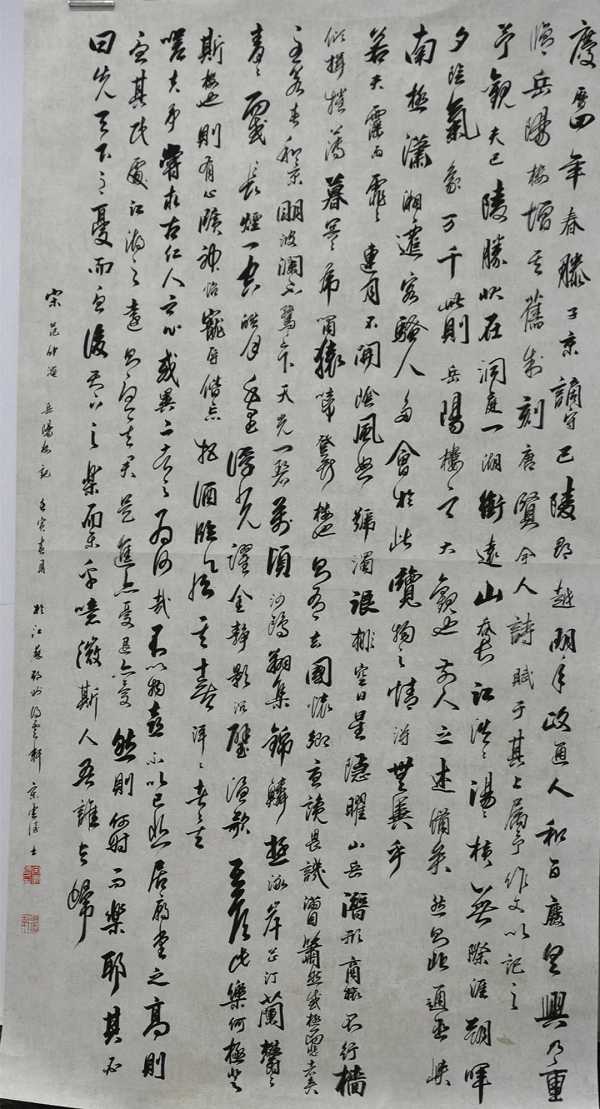 慶曆四年春滕子京謫守巴陵郡越明年政通人和百廢具興乃重
修岳陽樓增其舊制刻唐賢今人詩賦于其上屬予作文以記之
予觀夫巴陵勝狀在洞庭一湖銜遠山吞長江浩浩湯湯橫無際涯朝暉
夕陰氣象万千此則岳陽樓之大觀也前人之述備矣然則北通巫峽
南極瀟湘遷客騷人多會於此覽物之情得無異乎
若夫霪雨霏霏連月不開陰風怒號濁浪排空日星隱曜山岳潛形商旅不行檣
傾楫摧薄暮冥冥虎嘯猿啼登斯樓也則有去國懷鄉憂讒畏譏滿目蕭然感極而悲者矣
至若春和景明波瀾不驚上下天光一碧萬頃沙鷗翔集錦鱗游泳岸芷汀蘭鬱鬱
青青而或長煙一空皓月千里浮光躍金靜影沉璧漁歌互答此樂何極登
斯樓也則有心曠神怡寵辱偕忘把酒臨風其喜洋洋者矣
嗟夫予嘗求古仁人之心或異二者之為何哉不以物喜不以己悲居廟堂之高則
憂其民處江湖之遠則憂其君是進亦憂退亦憂然則何時而樂耶其必
曰先天下之憂而憂後天下之樂而樂乎噫微斯人吾誰與歸
宋范仲淹岳陽樓記壬寅春月於江蘇